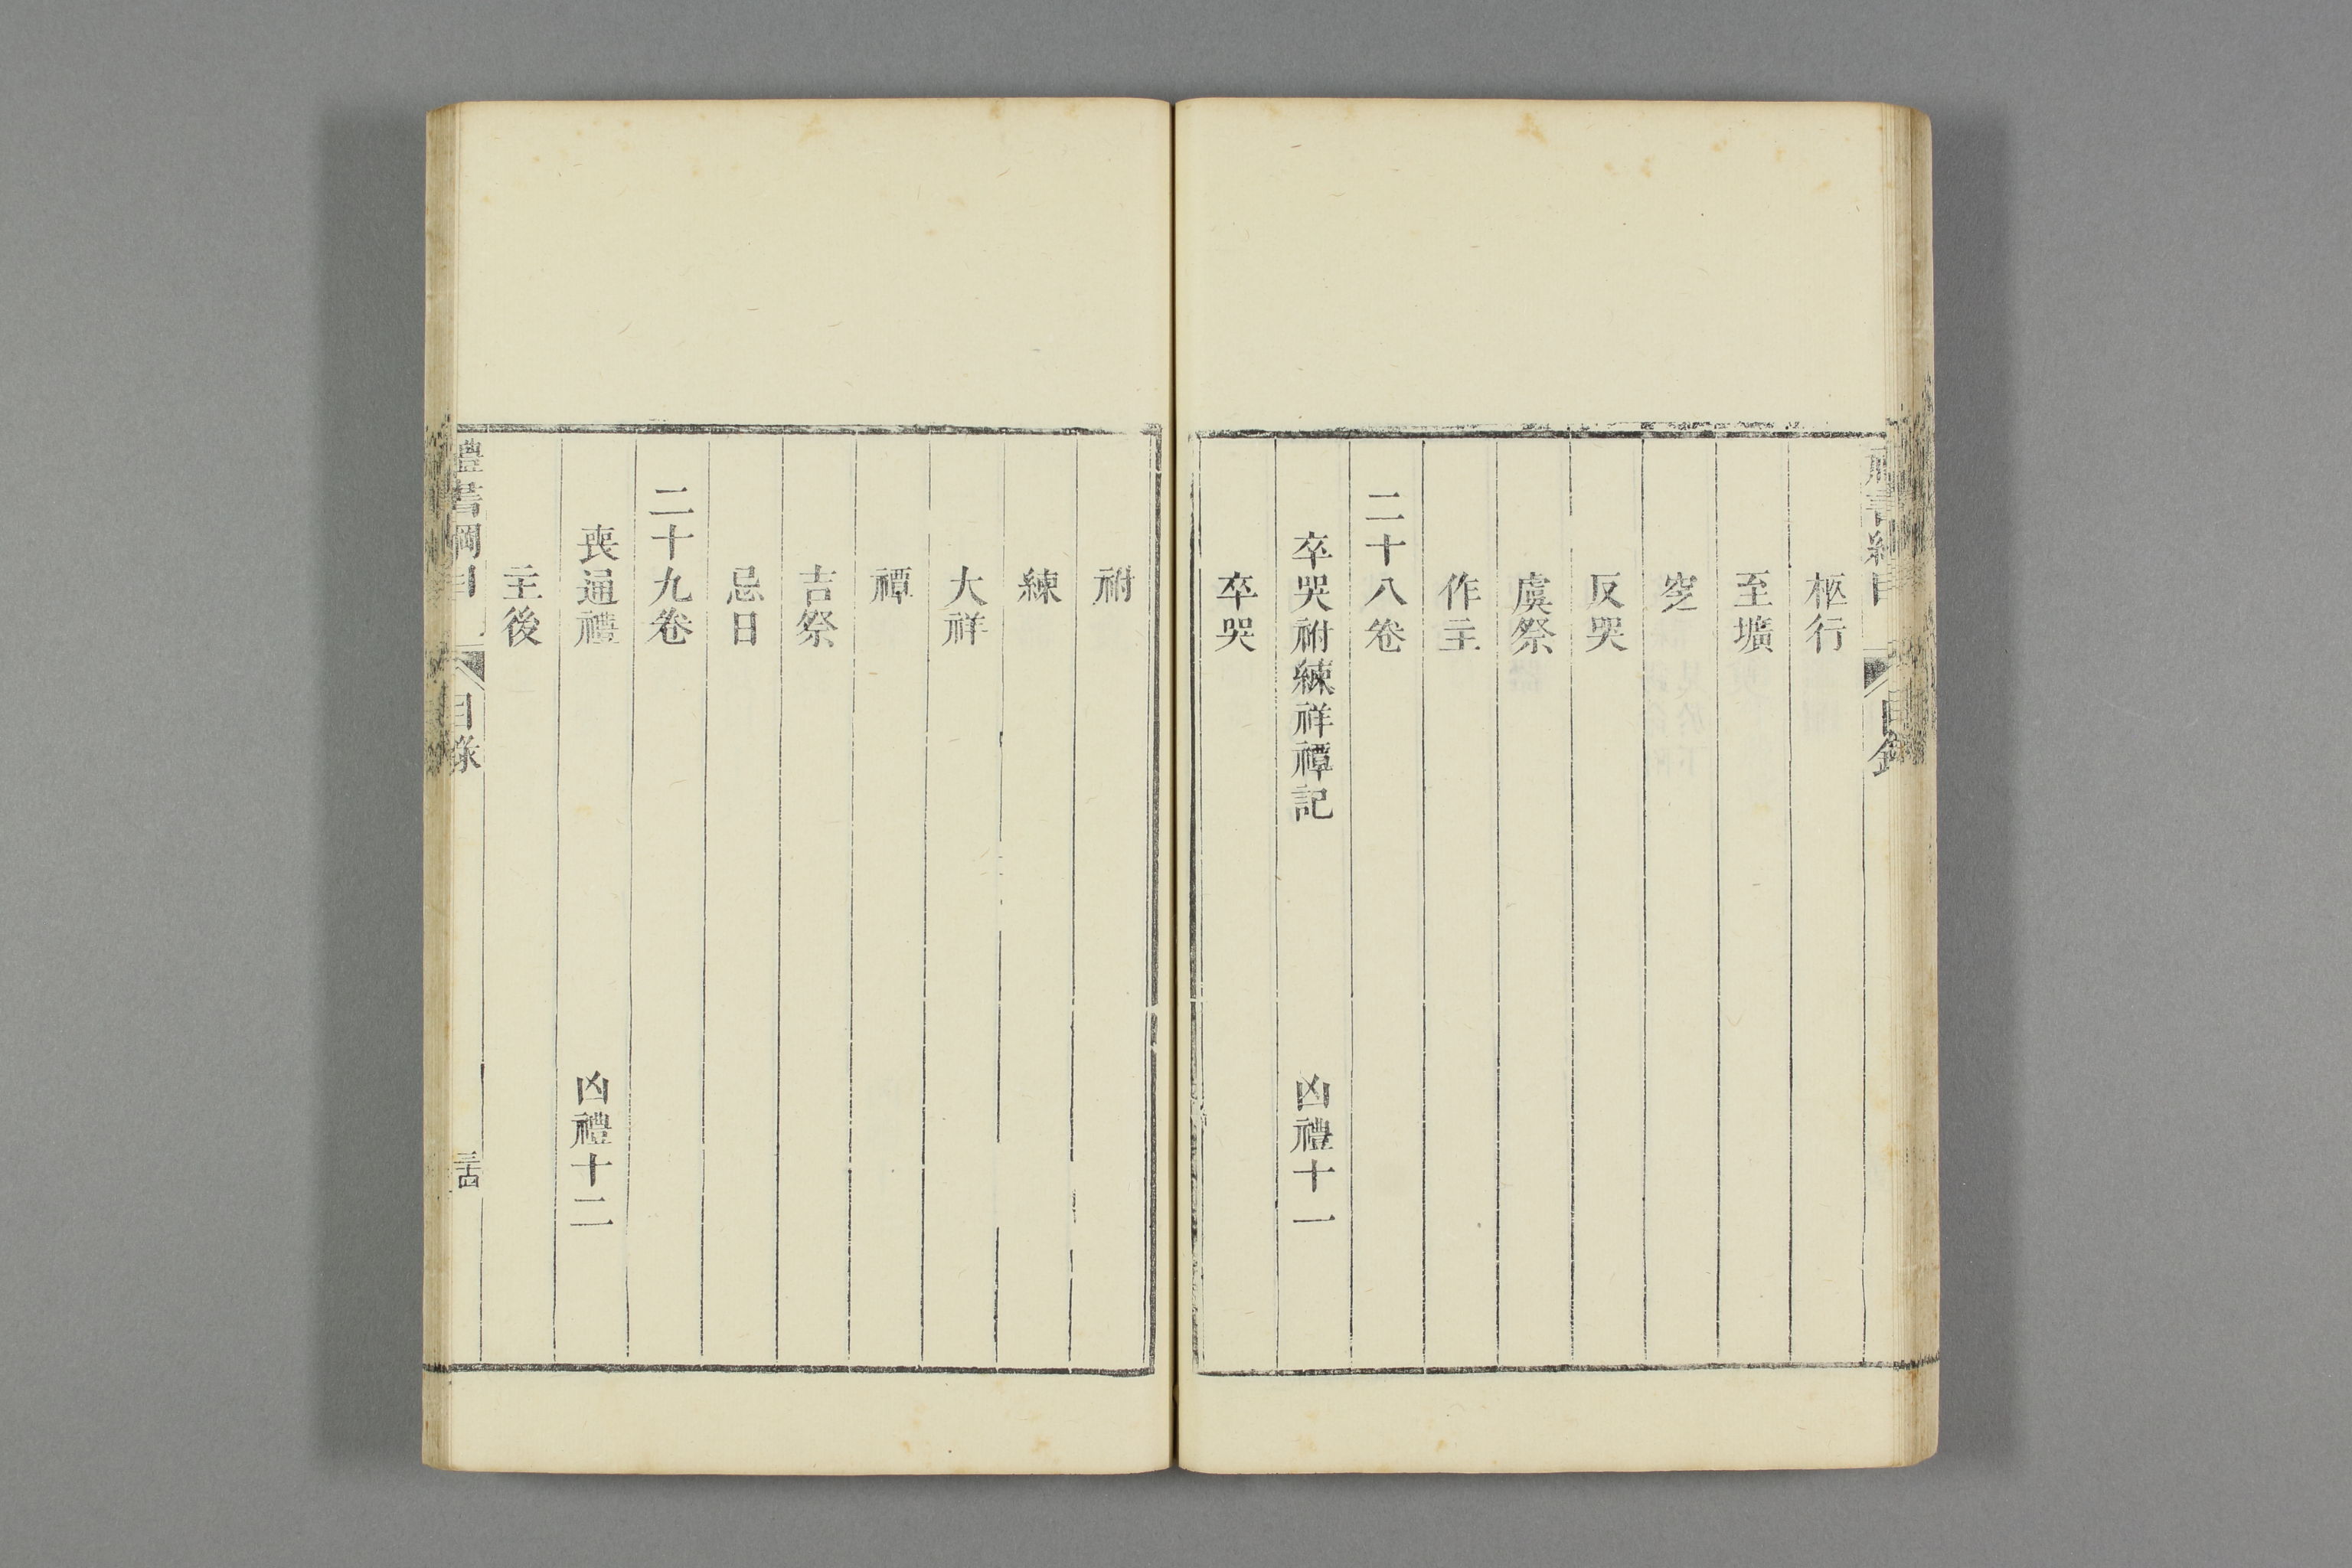 柩行
至壙
窆
反哭
虞祭
作主
二十八卷
卒哭祔練祥禫記 凶禮十一
卒哭
祔
練
大祥
禫
吉祭
忌日
二十九卷
喪通禮 凶禮十二
主後
禮書綱目 目录